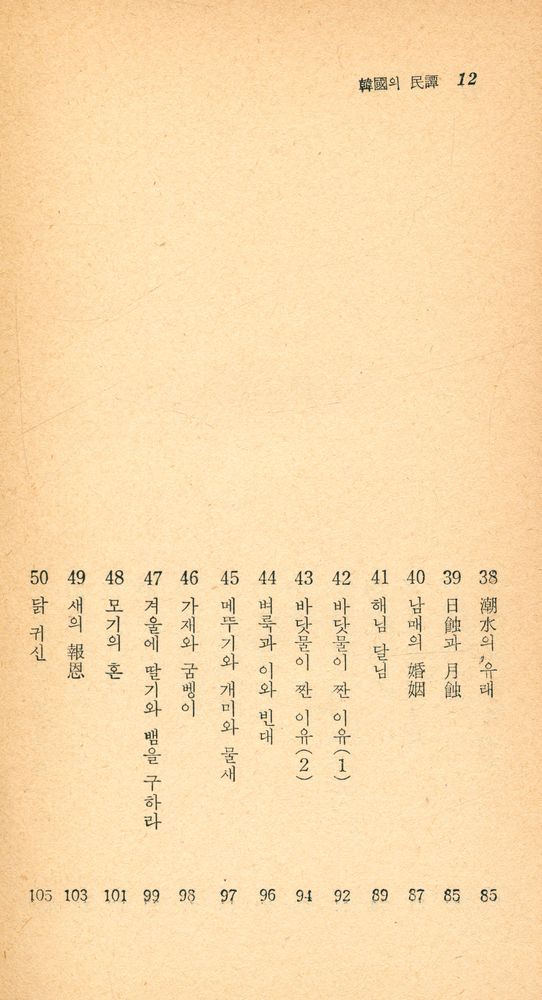 韓國의 民譚 12
38 潮水의 유래 85
39 日蝕과 月蝕 85
40 남매의 婚姻 87
41 해님 달님 89
42 바닷물이 짠 이유(1) 92
43 바닷물이 짠 이유(2) 94
44 벼룩과 이와 빈대 96
45 메뚜기와 개미와 물새 97
46 가재와 굼벵이 98
47 겨울에 딸기와 뱀을 구하라 99
48 모기의 혼 101
49 새의 報恩 103
50 닭 귀신 105